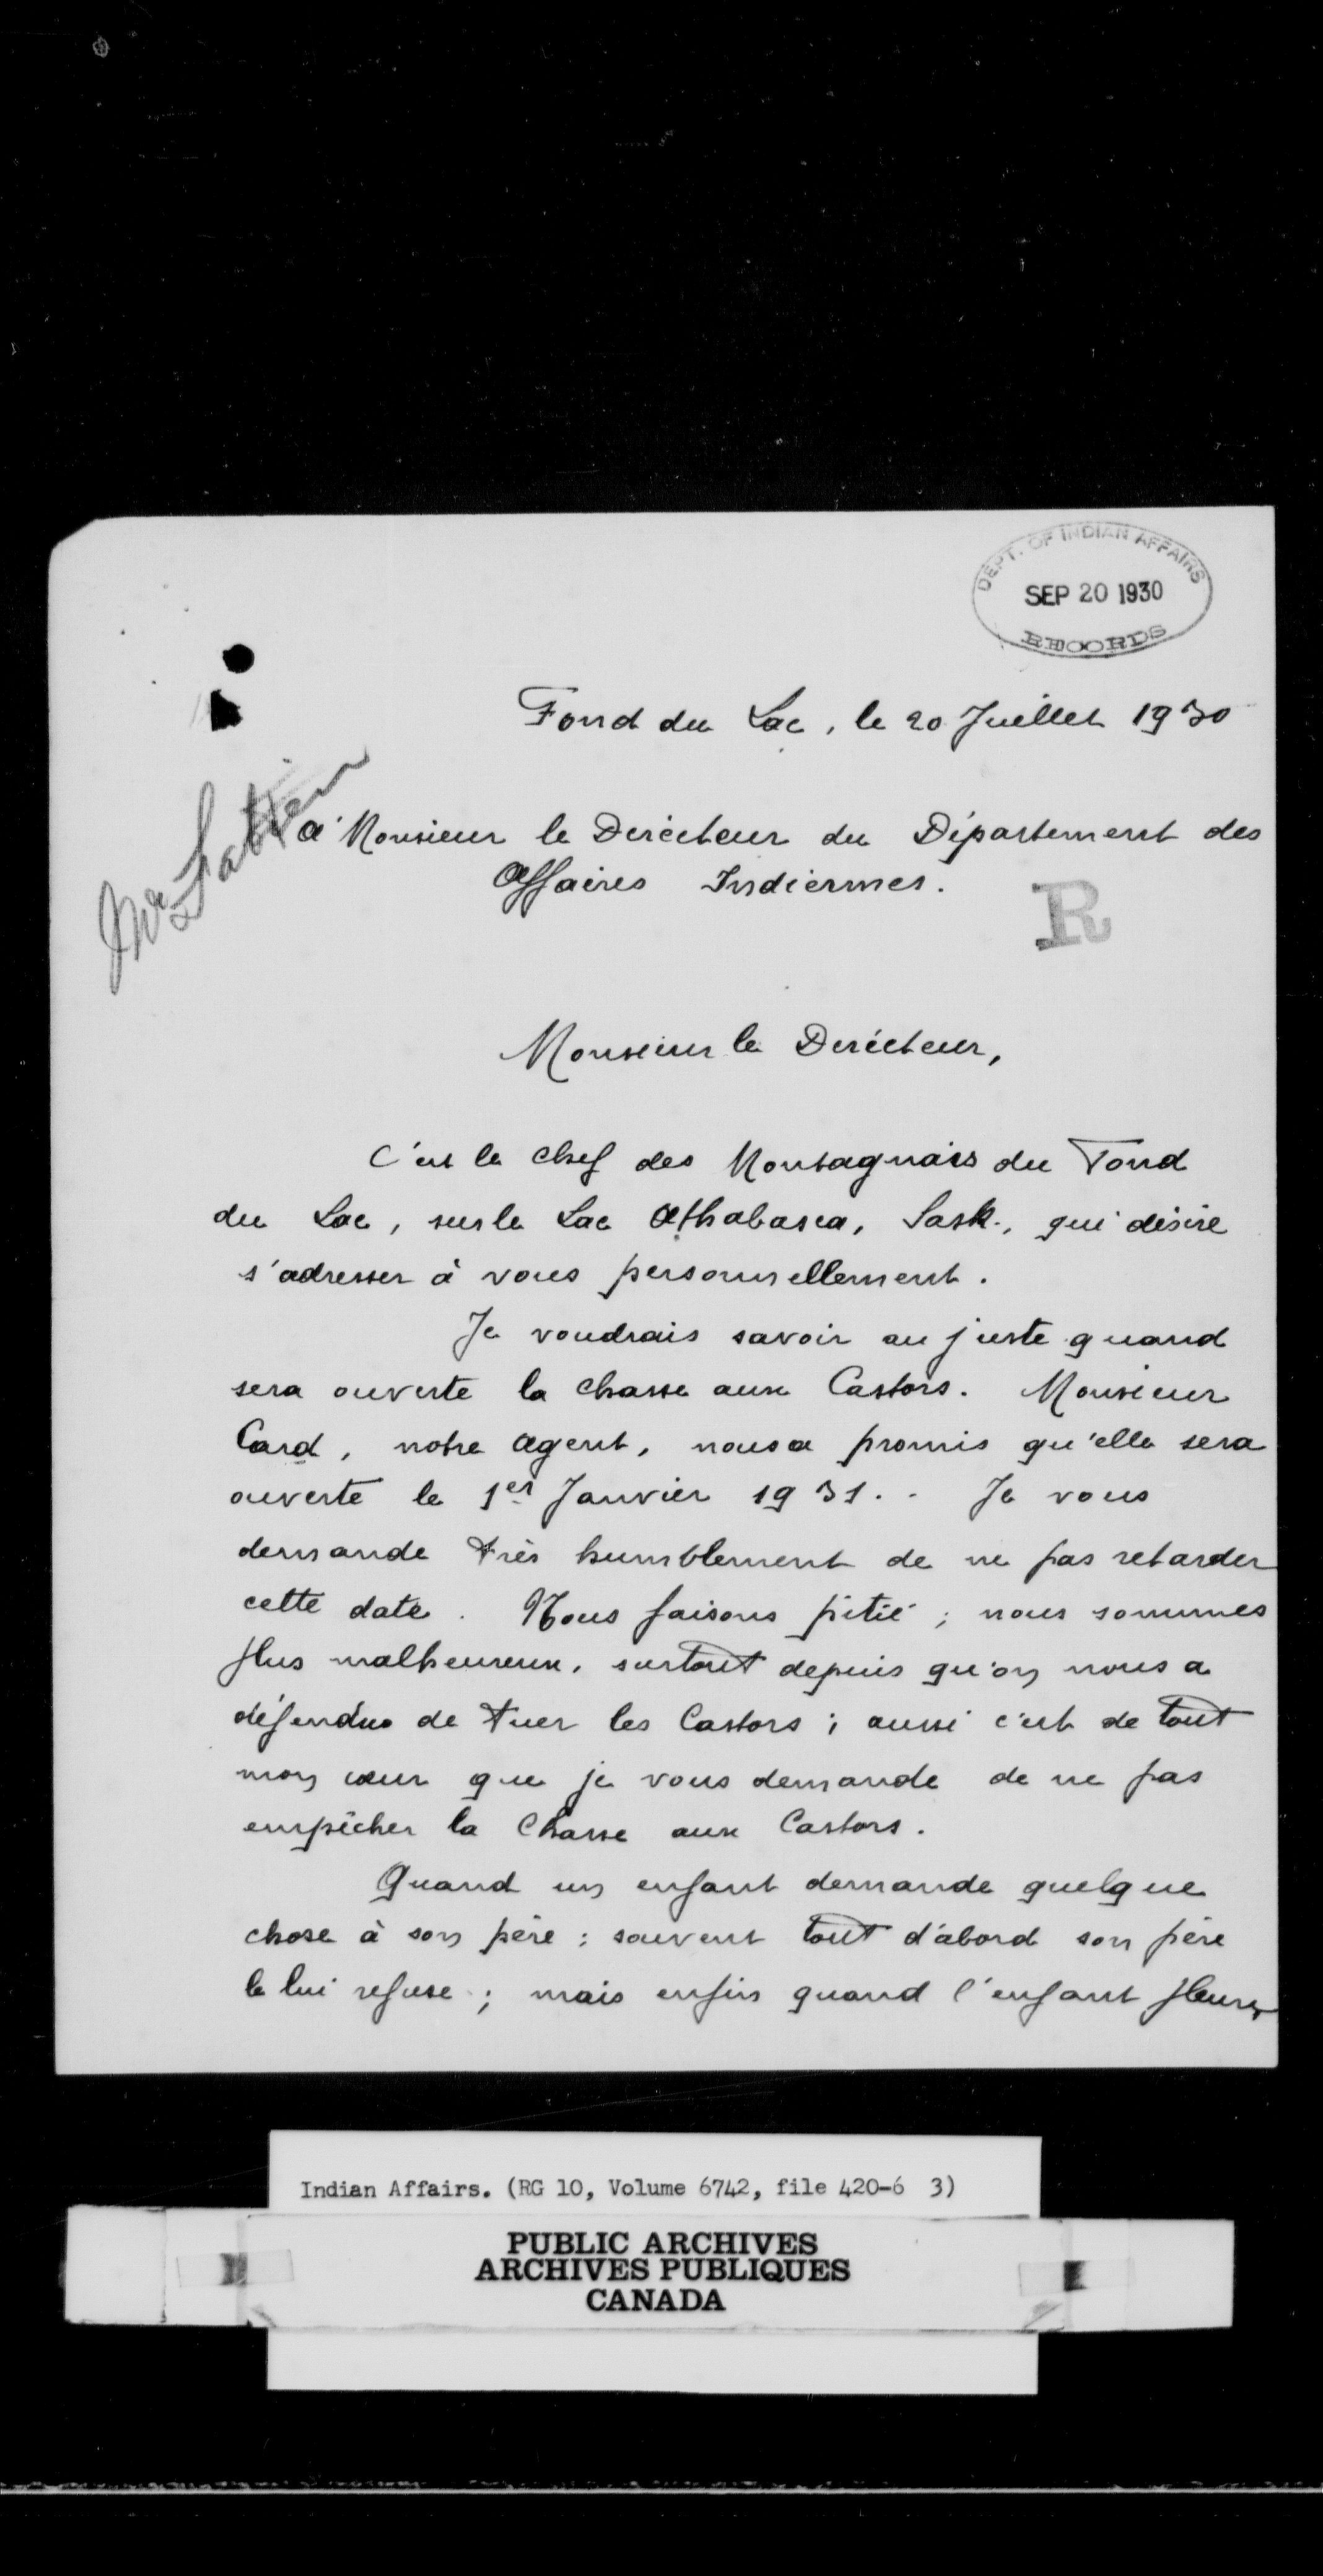 DEPT. OF INDIAN AFFAIRS
SEP 20 1930
RECORDS
Fond du Lac, le 20 Juillet 1930
Mr
à Monsieur le Directeur du Département des
Affaires Indiennes.
R
Monsieur le Directeur,
C'est le chef des Montagnais du Fond
du Lac, sur le Lac Athabasca, Sask., qui désire
s'adresser à vous personnellement.
Je voudrais savoir au juste quand
sera ouverte la chasse aux Castors. Monsieur
Card, notre agent, nous a promis qu'elle sera
ouverte le 1er Janvier 1931. - Je vous
demande très humblement de ne pas retarder
cette date. Nous faisons pitié ; nous sommes
plus malheureux, surtout depuis qu'on nous a
défendus de tuer les Castors ; aussi c'est de tout
mon cœur que je vous demande de ne pas
empêcher la Chasse aux Castors.
Quand un enfant demande quelque
chose à son père : souvent tout d'abord son père
le lui refuse ; mais enfin quand l'enfant pleure,
Indian Affairs. (RG 10, Volume 6742, file 420-6 3)
PUBLIC ARCHIVES
ARCHIVES PUBLIQUES
CANADA